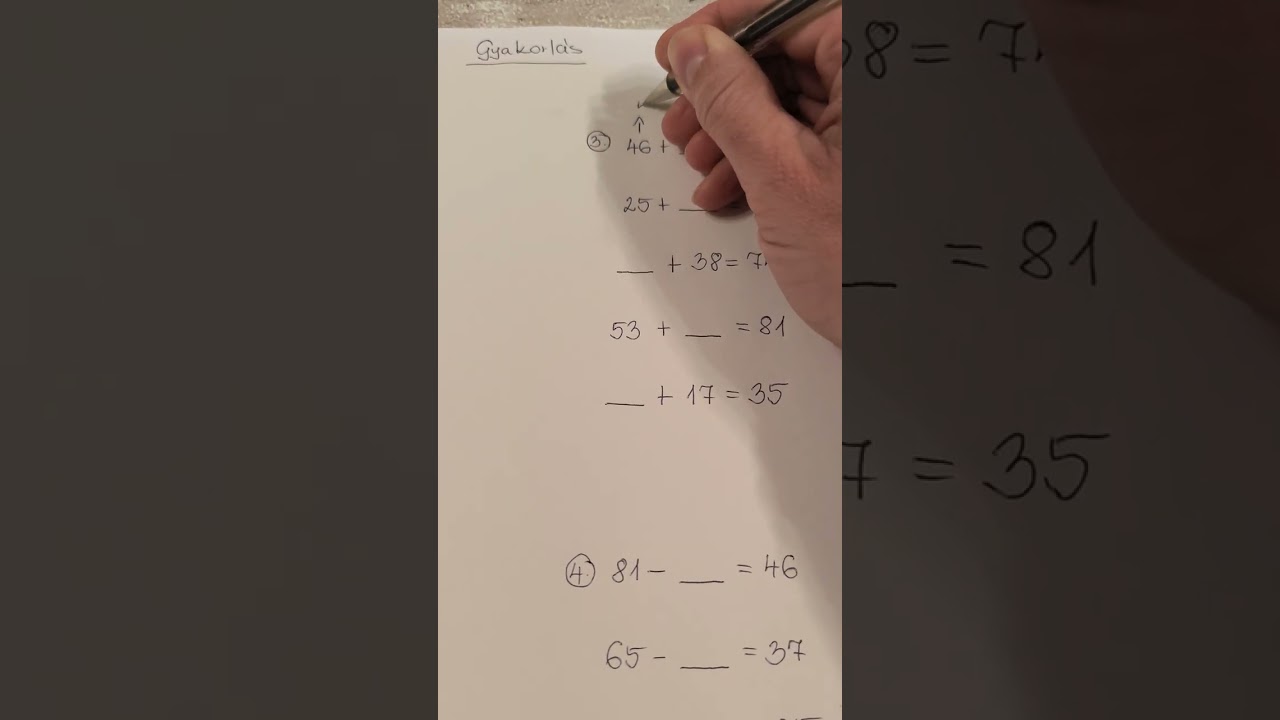 Gyakorlás
↑
③. 46 +
25 + ___
___ + 38 = 7
53 + ___ = 81
___ + 17 = 35
④. 81 - ___ = 46
65 - ___ = 37